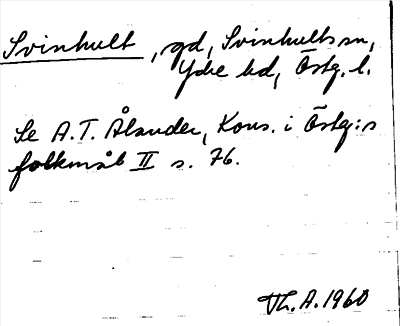 Svinhult, gd, Svinhults sn,
Ydre hd, Östg. l.
Se A.T. Ålander, Kons. i Östg:s
folkmål II s. 76.
Th. A. 1960